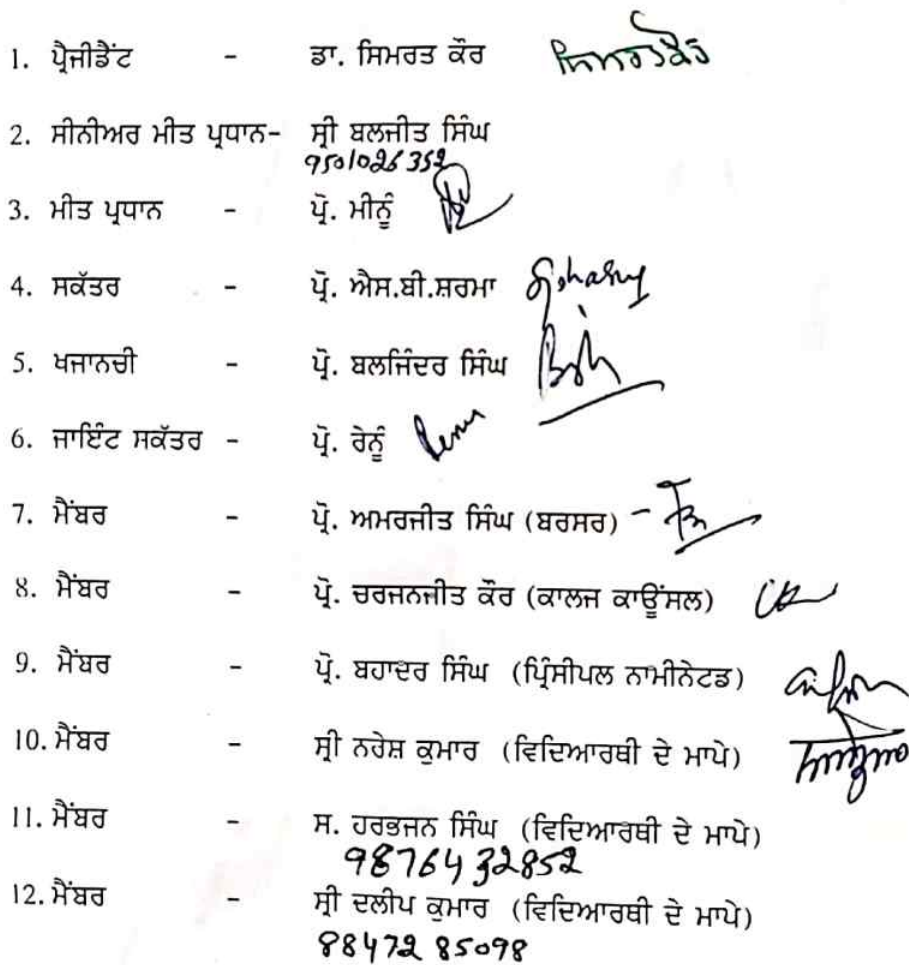 1. ਪ੍ਰੈਜੀਡੈਂਟ - ਡਾ. ਸਿਮਰਤ ਕੌਰ
2. ਸੀਨੀਅਰ ਮੀਤ ਪ੍ਰਧਾਨ- ਸ੍ਰੀ ਬਲਜੀਤ ਸਿੰਘ
9501026352
3. ਮੀਤ ਪ੍ਰਧਾਨ - ਪ੍ਰੋ. ਮੀਨੂੰ
4. ਸਕੱਤਰ - ਪ੍ਰੋ. ਐਸ.ਬੀ.ਸ਼ਰਮਾ
5. ਖਜਾਨਚੀ - ਪ੍ਰੋ. ਬਲਜਿੰਦਰ ਸਿੰਘ
6. ਜਾਇੰਟ ਸਕੱਤਰ - ਪ੍ਰੋ. ਰੇਨੂੰ Renu
7. ਮੈਂਬਰ - ਪ੍ਰੋ. ਅਮਰਜੀਤ ਸਿੰਘ (ਬਰਸਰ) -
8. ਮੈਂਬਰ - ਪ੍ਰੋ. ਚਰਜਨਜੀਤ ਕੌਰ (ਕਾਲਜ ਕਾਊਂਸਲ)
9. ਮੈਂਬਰ - ਪ੍ਰੋ. ਬਹਾਦਰ ਸਿੰਘ (ਪ੍ਰਿੰਸੀਪਲ ਨਾਮੀਨੇਟਡ)
10. ਮੈਂਬਰ - ਸ੍ਰੀ ਨਰੇਸ਼ ਕੁਮਾਰ (ਵਿਦਿਆਰਥੀ ਦੇ ਮਾਪੇ)
11. ਮੈਂਬਰ - ਸ. ਹਰਭਜਨ ਸਿੰਘ (ਵਿਦਿਆਰਥੀ ਦੇ ਮਾਪੇ)
9876432852
12. ਮੈਂਬਰ - ਸ੍ਰੀ ਦਲੀਪ ਕੁਮਾਰ (ਵਿਦਿਆਰਥੀ ਦੇ ਮਾਪੇ)
88472 85098